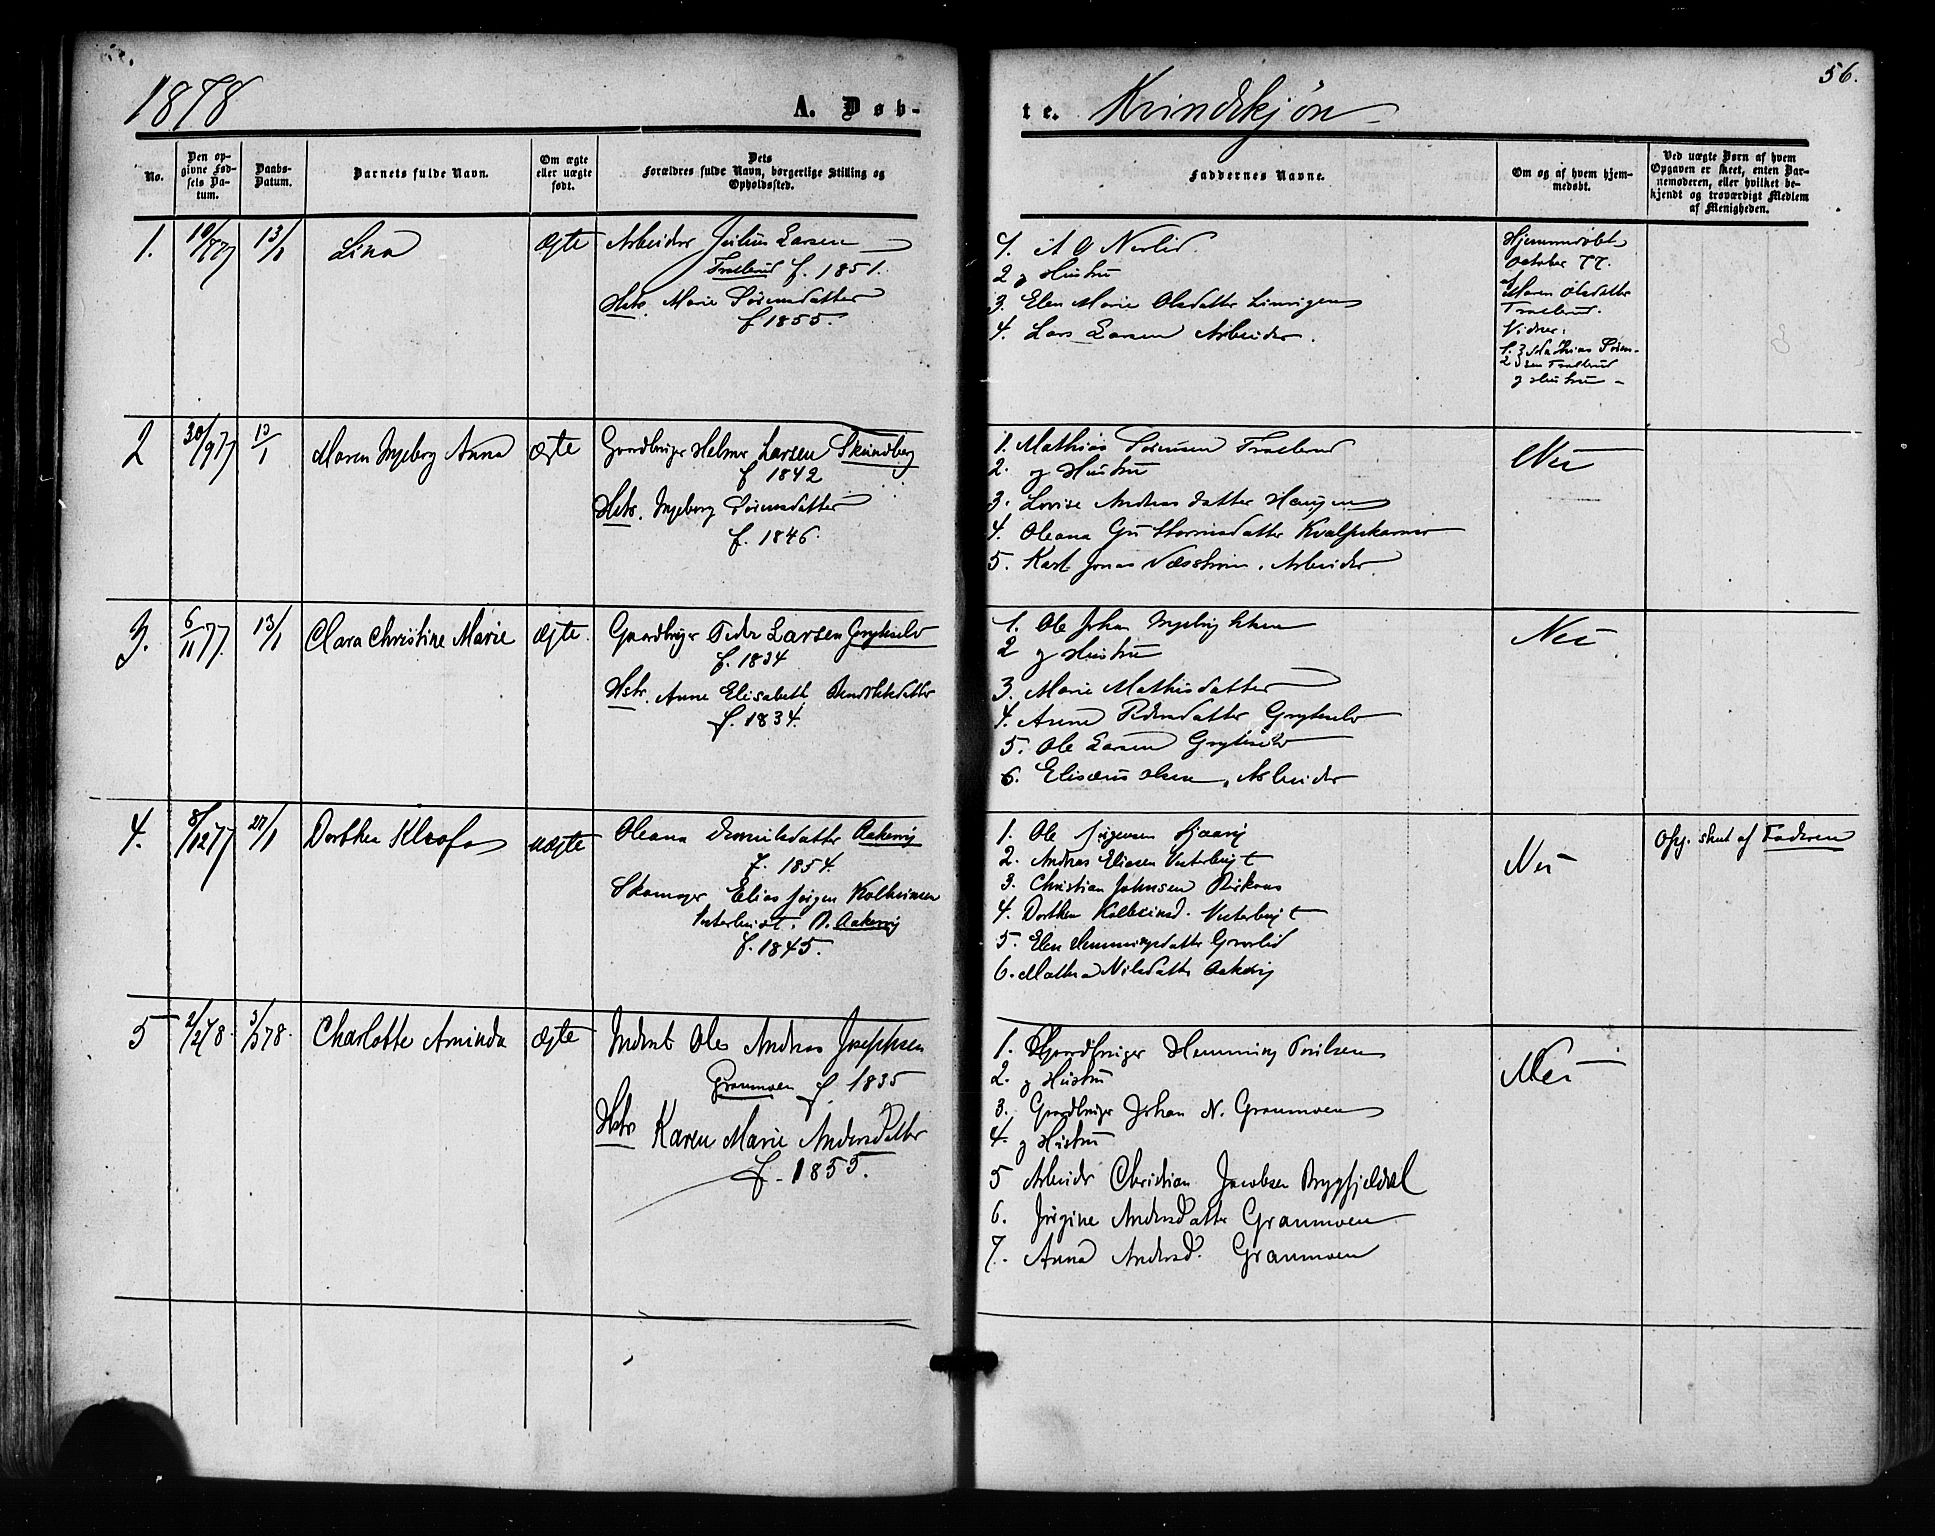 1878
A. Døb-
te. Kvindekjøn
56.
No.
Den op-
givne Fød-
sels Da-
tum.
Daabs-
Datum.
Barnets fulde Navn.
Om ægte
eller uægte
født.
Dets
Forældres fulde Navn, borgerlige Stilling og
Opholdssted.
Faddernes Navne.
Om og af hvem hjem-
medøbt.
Ved uægte Børn af hvem
Opgaven er skeet, enten Bar-
nemoderen, eller hvilket be-
kjendt og troværdigt Medlem
af Menigheden.
1.
13/1
Lina
Ægte
Arbeider Julius Larsen
f. 1851.
Hstr. Marie Sørensdatter
f 1855.
1. A O Nerlid.
2 og Hustru
3. Elen Marie Olsdatter
4. Lars Larsen Arbeider.
Hjemmedøbt
October 77.
af
Maren Olsdatter
Vidner:
1.
2
og Hustru
2
30/9 77
13/1
Maren Ingeborg Anna
Ægte
Gaardbruger Helmer Larsen
f 1842
Hstr. Ingeborg Sørensdatter
f. 1846.
1. Mathias Sørensen
2. og Hustru
3. Lovise Andreasdatter Haugen
4. Oleana
5. Karl Jonas Næsstrøm. Arbeider
Nei
3.
6/11 77.
13/1
Clara Christine Marie
Ægte.
Gaardbruger Peder Larsen Grytselv
f. 1834
Hstr. Anne Elisabeth
f. 1834.
1. Ole Johan
2 og Hustru
3. Marie Mathisdatter
4. Anne Pedersdatter Grytselv
5. Ole Larsen Grytselv
6. Elisæus Olsen, Arbeider
Nei
4.
8/12 77
27/1
Dorthea Kleofa
uægte
Oleana Aakervig
f. 1854.
Skomager Elias Jørgen
Aakervig
f. 1845.
1. Ole Jørgensen
2. Andreas Eliasen
3. Christian Johnsen
4. Dorthea
5. Elen Hemmingsdatter Grovlid
6. Mathea Nilsdatter Aakervig
Nei
Opg. skeet af Faderen
5
2/2 78.
3/3 78.
Charlotte Aminda
Ægte
Inderst Ole Andreas Josephsen
Granmoen f. 1835
Hstr Karen Marie Andersdatter
f. 1855.
1. Gaardbruger Hemming
2. og Hustru
3. Gaardbruger Johan N. Granmoen
4. og Hustru
5 Arbeider Christian Jacobsen Bryggfjelddal
6. Jørgine Andersdatter Granmoen
7. Anna Andersd. Granmoen
Nei